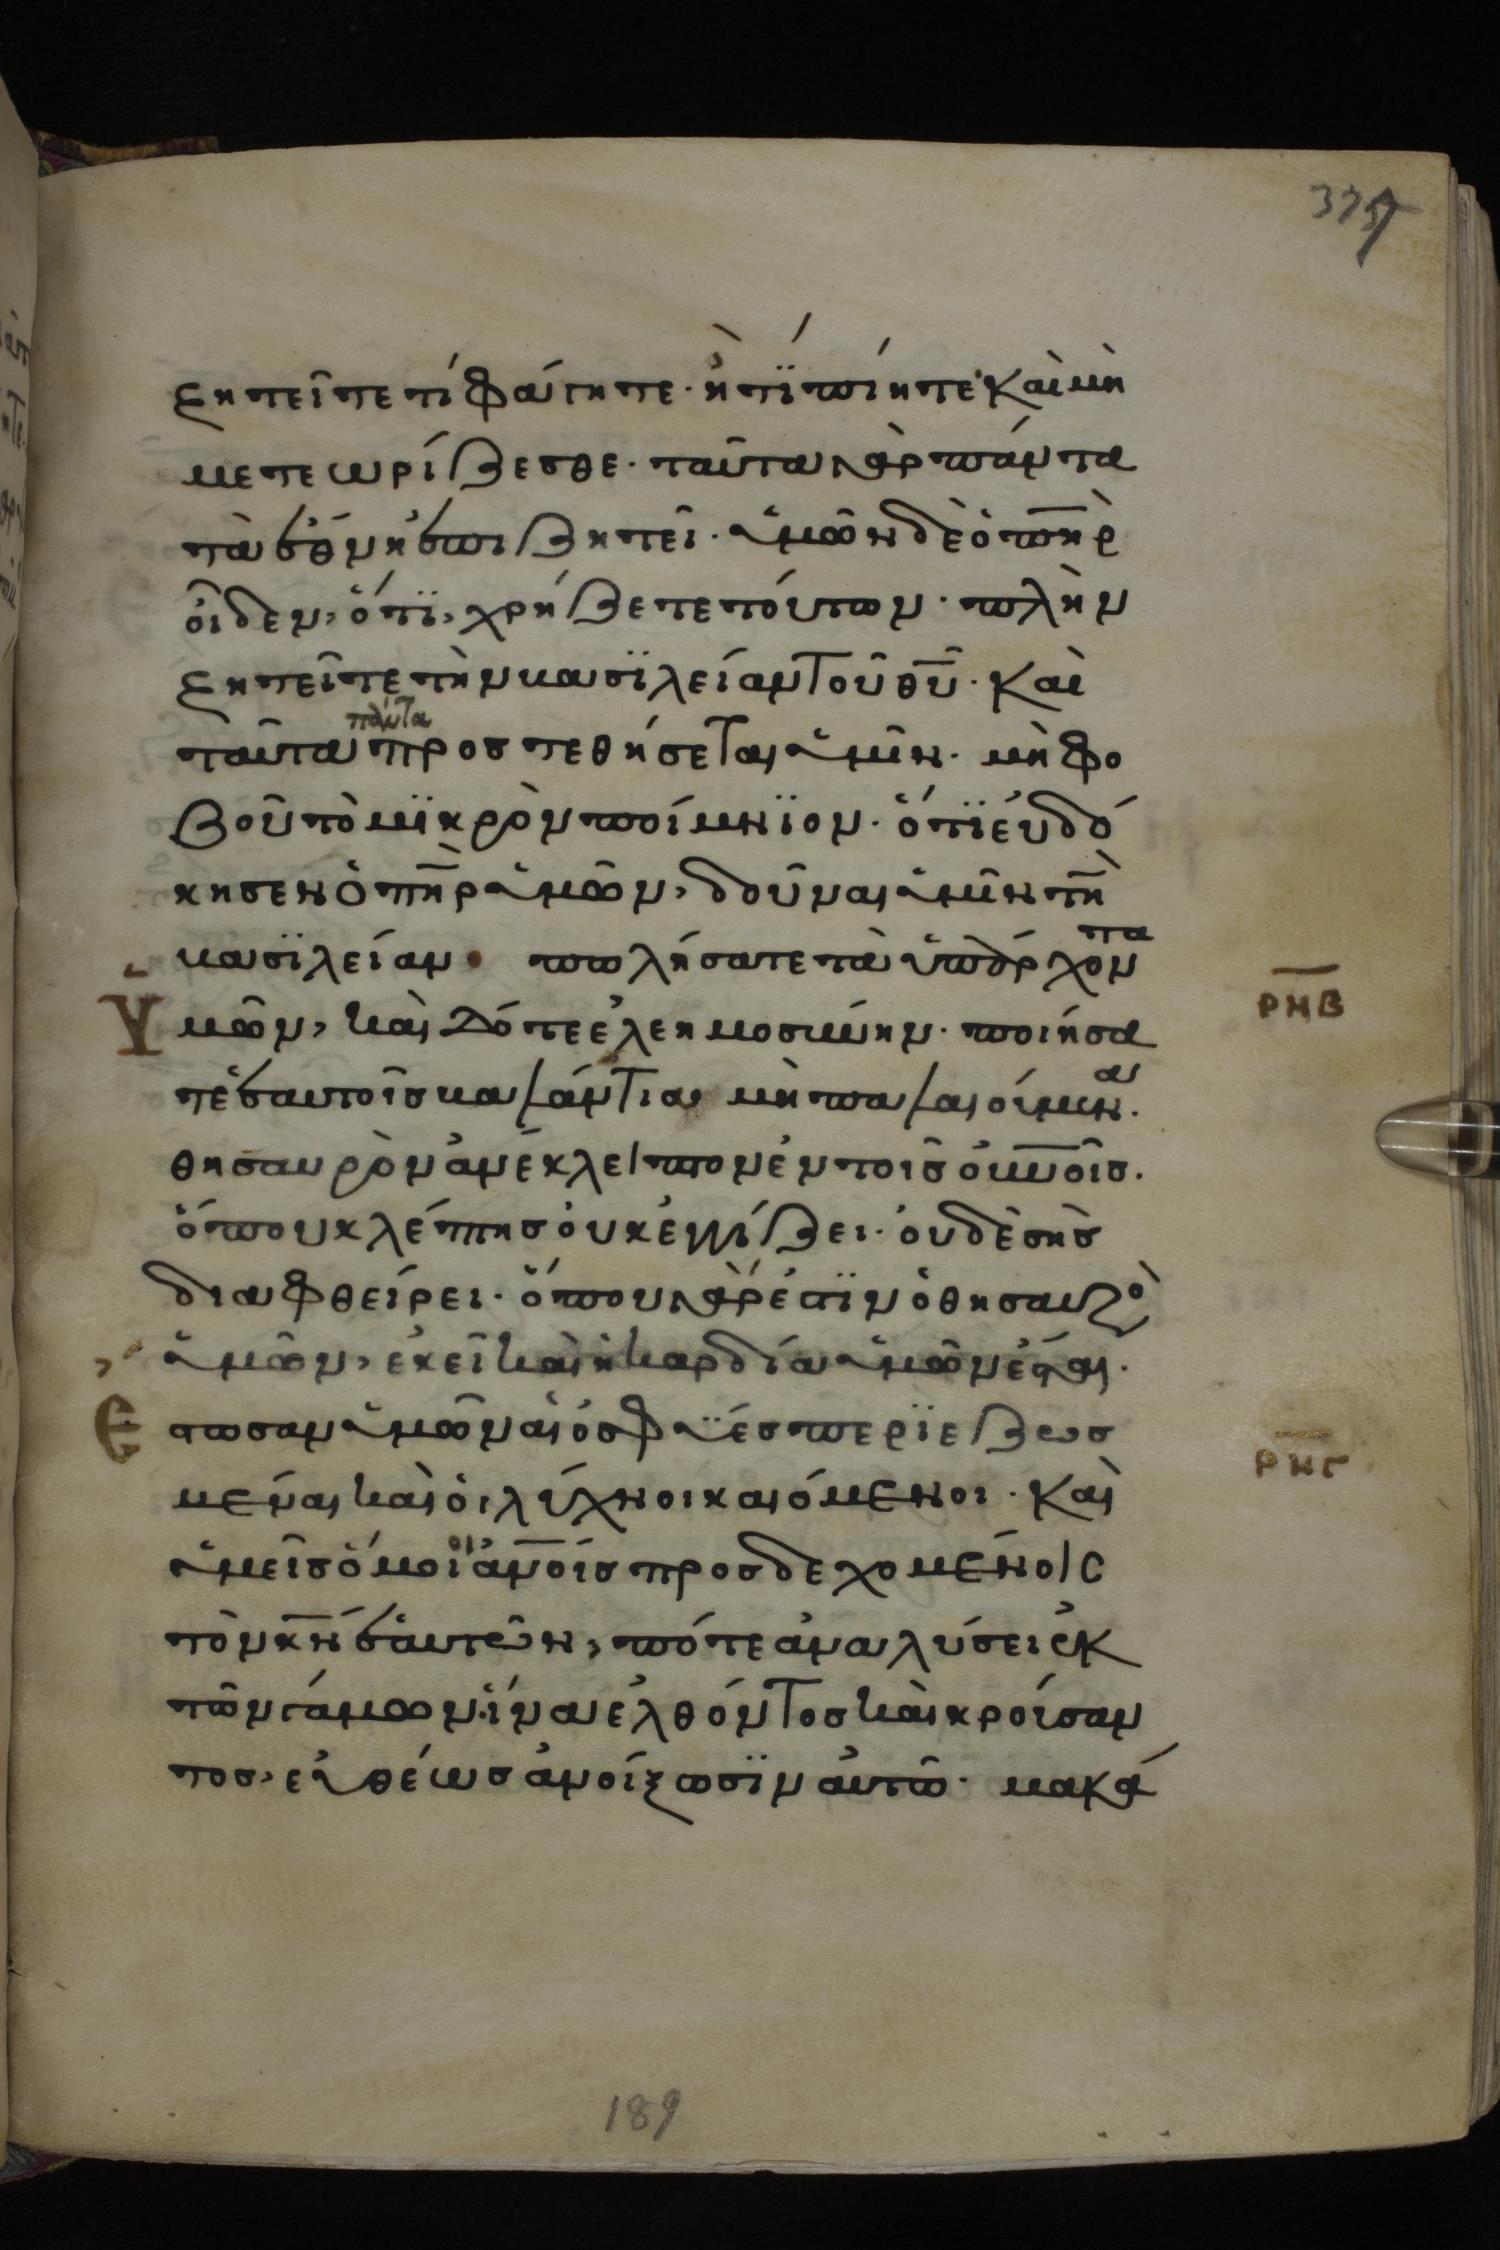 377
ζητεῖτε τί φάγητε· ἢ τΐ πίητε· καὶ μὴ
μετεωρίζεσθε· ταῦτα γὰρ πάντα
τὰ ἔθνη ἐπιζητεῖ· ὑμῶν δὲ ὁ πη̅ρ
οἶδεν, ὅτϊ, χρήζετε τούτων· πλὴν
ζητεῖτε τὴν βασϊλείαν τοῦ θυ̅· καὶ
πάντα
ταῦτα προστεθήσεται ὑμῖν· μὴ φο
βοῦ τὸ μϊκρὸν ποίμνϊον· ὅτϊ εὐδό
κησεν ὁ πη̅ρ ὑμῶν, δοῦναι ὑμῖν τὴ̅
βασϊλείαν· πωλήσατε τὰ ὑπάρχοντα
Ὑμῶν, καὶ δότε ἐλεημοσύνην· ποιήσα ρμβ
τε ἑαυτοῖς βαλάντια μὴ παλαιούμενα·
θησαυρὸν ἀνέκλειπτον ἐν τοῖς οὐνοῖς·
ὅπου κλέπτης οὐκ ἐγγίζει· οὐδὲ σὴς
διαφθείρει· ὅπου γάρ ἐστϊν ὁ θησαυρὸ
ὑμῶν, ἐκεῖ καὶ ἡ καρδία ὑμῶν ἔσται·
Ἔστωσαν ὑμῶν αἱ ὀσφϋές περϊεζωσ ρμγ
μέναι καὶ οἱ λύχνοι καιόμενοι· καὶ
ὑμεῖς ὅμοιοι ἀνοις προσδεχομένοις
τὸν κν̅ ἑαυτῶν, πότε ἀναλύσει ἐκ
τῶν γάμων· ἵνα ἐλθόντος καὶ κρούσαν
τος, εὐθέως ἀνοίξωσϊν αὐτῶ· μακά
189